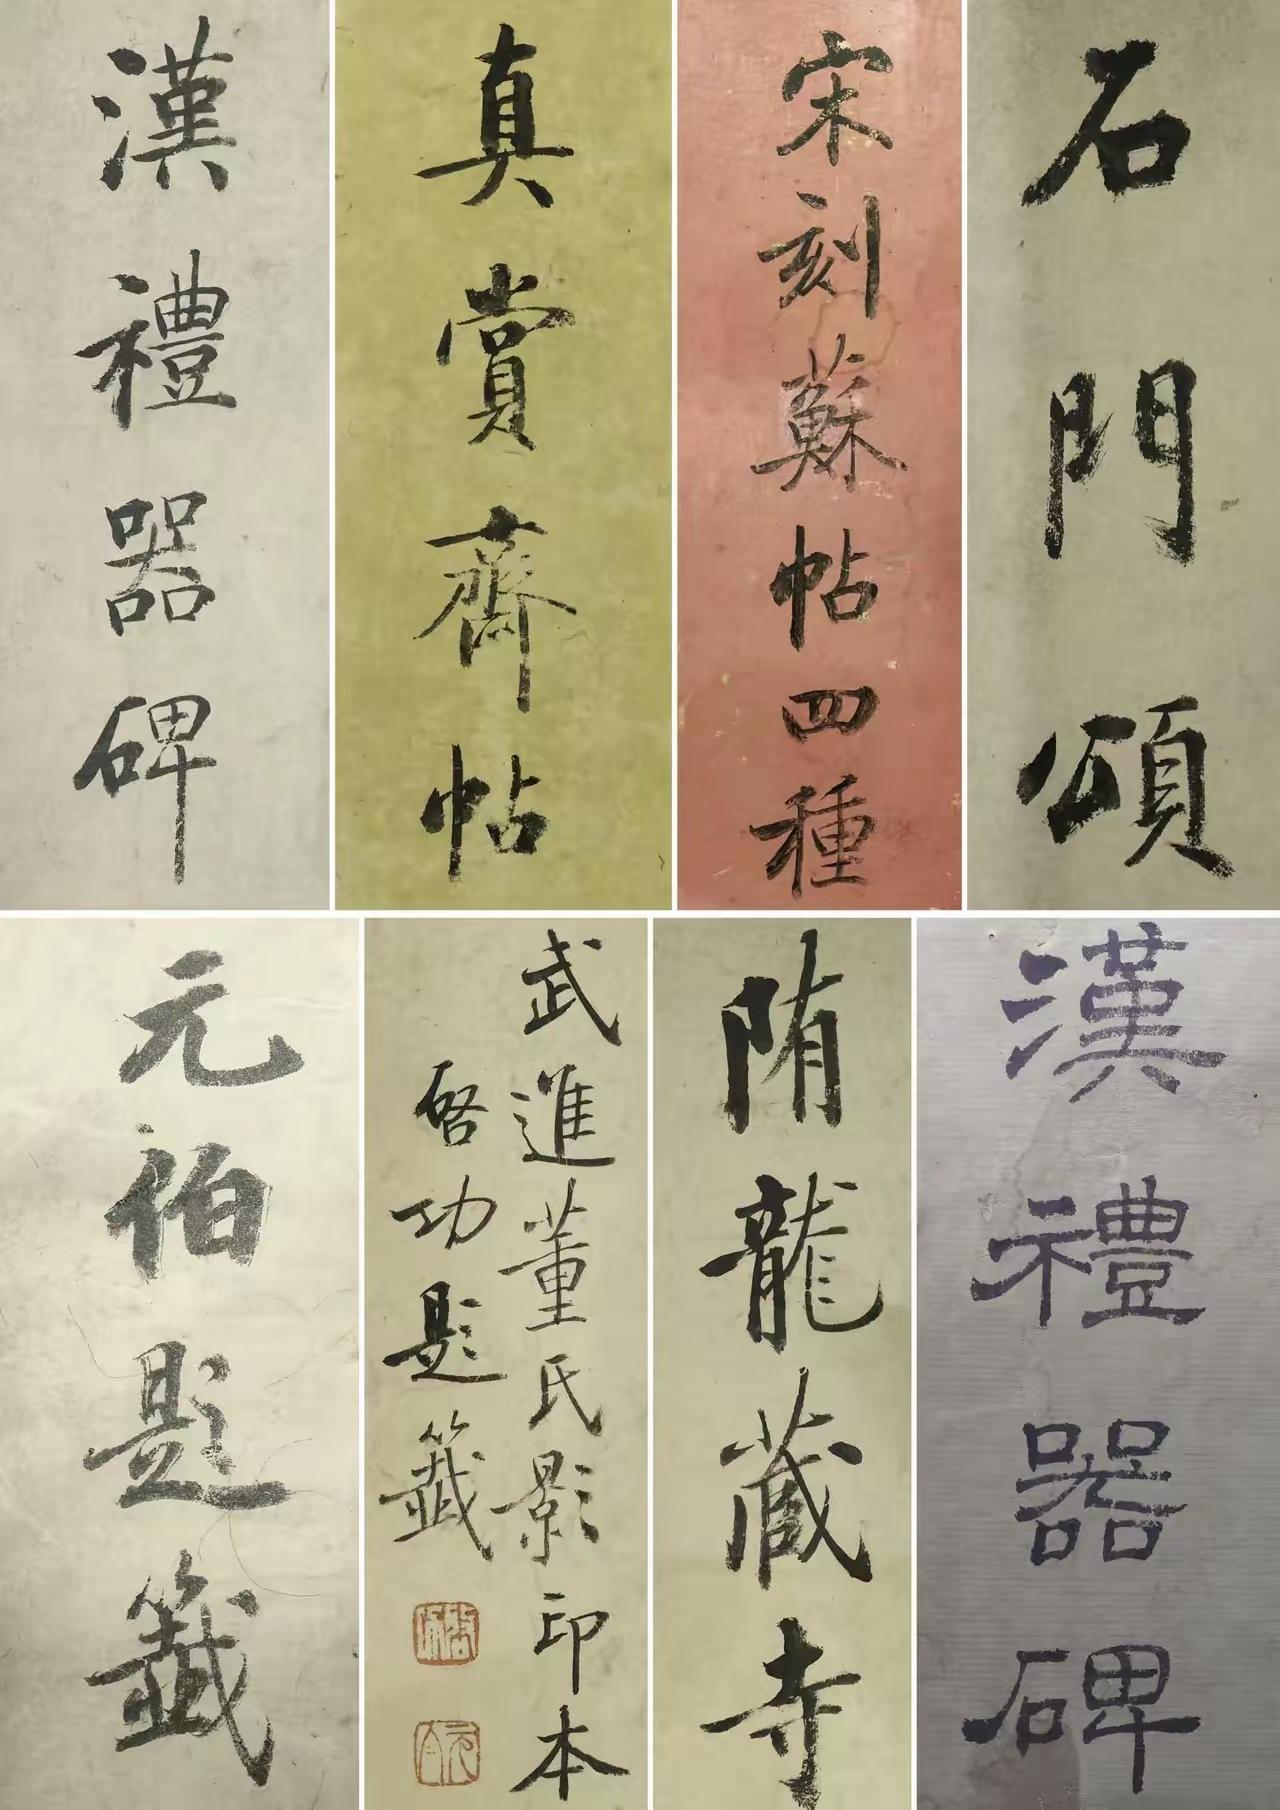 石門頌
宋刻蘇帖四種
真賞齋帖
漢禮器碑
漢禮器碑
陏龍藏寺
武進董氏影印本
启功題籤
元白
元伯題籤